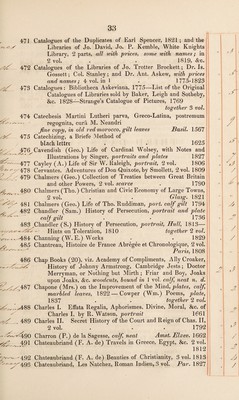 33
471 Catalogues of the Duplicates of Earl Spencer, 1821; and the
Libraries of Jo. David, Jo. P. Kemble, White Knights
Library, 2 parts, all with prices, some with names; in
2 vol. 1819, &c.
472 Catalogues of the Libraries of Jo. Trotter Brockett; Dr. Is.
Gossett; Col. Stanley; and Dr. Ant. Askew, with prices
and names; 4 vol. in 1 1775-1823
473 Catalogues: Bibliotheca Askeviana, 1775—List of the Original
Catalogues of Libraries sold by Baker, Leigh and Sotheby,
&c. 1828—Strange's Catalogue of Pictures, 1769
together 3 vol.
474 Catechesis Martini Lutheri parva, Græco-Latina, postremum
recognita, curâ M. Neandri
fine copy, in old red morocco, gilt leaves Basil. 1567
475 Catechizing, a Briefe Method of
black letter 1623
476 Cavendish (Geo.) Life of Cardinal Wolsey, with Notes and
Illustrations by Singer, portraits and plates 1827
477 Cayley (A.) Life of Sir W. Raleigh, portrait, 2 vol. 1806
478 Cervantes. Adventures of Don Quixote, by Smollett, 2 vol. 1809
479 Chalmers (Geo.) Collection of Treaties between Great Britain
and other Powers, 2 vol. scarce 1790
480 Chalmers (Tho.) Christian and Civic Economy of Large Towns,
2 vol. Glasg. 1821
481 Chalmers (Geo.) Life of Tho. Ruddiman, port. calf gilt 1794
482 Chandler (Sam.) History of Persecution, portrait and plate
calf gilt 1736
483 Chandler (S.) History of Persecution, portrait, Hull, 1813—
Hints on Toleration, 1810 together 2 vol.
484 Channing (W. E.) Works 1829
485 Chantreau, Histoire de France Abrégée et Chronologique, 2 vol.
Paris, 1808
486 Chap Books (20), viz. Academy of Compliments, Ally Croaker,
History of Johnny Armstrong, Cambridge Jests; Doctor
Merryman, or Nothing but Mirth; Friar and Boy, Joaks
upon Joaks, &c. woodcuts, bound in 1 vol. calf, neat n. d.
487 Chapone (Mrs.) on the Improvement of the Mind, plates, calf,
marbled leaves, 1822—Cowper (Wm.) Poems, plate,
1837 together 2 vol.
488 Charles I. Effata Regalia, Aphorismes, Divine, Moral, &c. of
Charles I. by R. Watson, portrait 1661
489 Charles II. Secret History of the Court and Reign of Chas. II.
2 vol. 1792
490 Charron (P.) de la Sagesse, calf, neat Amst. Elzev. 1662
491 Chateaubriand (F. A. de) Travels in Greece, Egypt, &c. 2 vol.
1812
492 Chateaubriand (F. A. de) Beauties of Christianity, 3 vol. 1813
493 Chateaubriand, Les Natchez, Roman Indien, 3 vol. Par. 1827